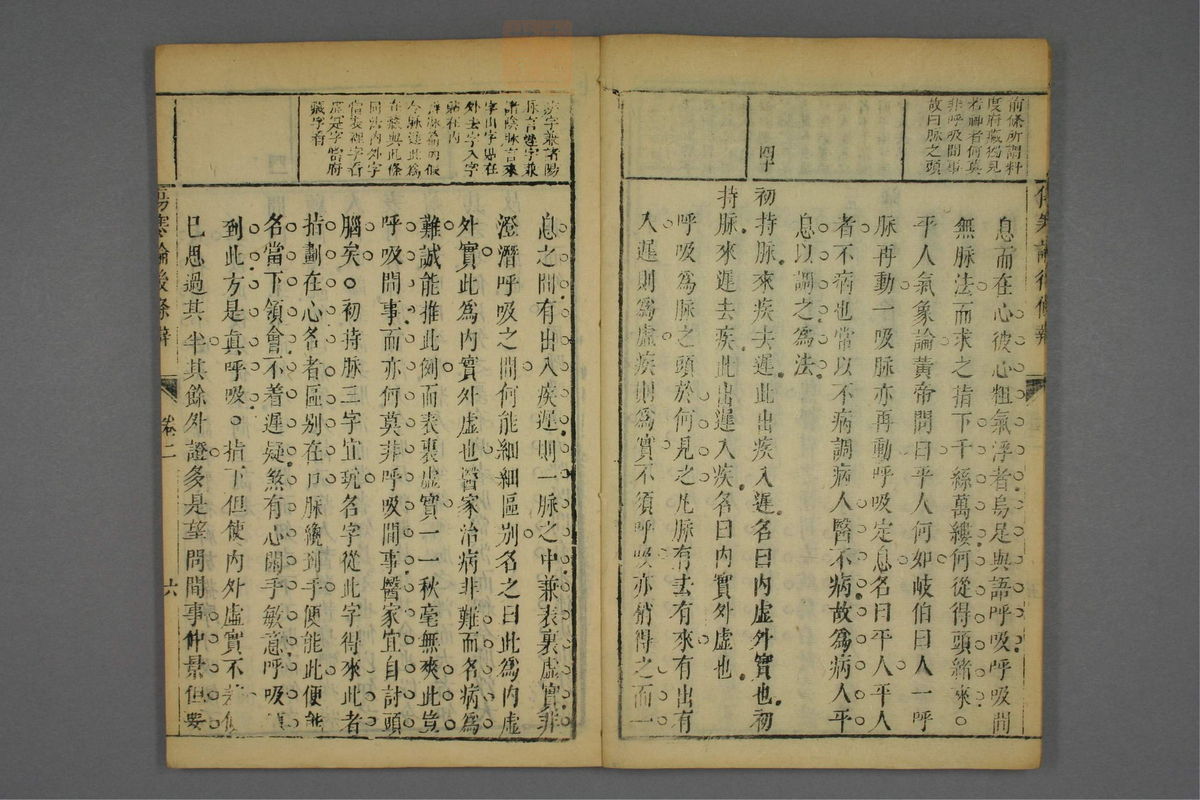 前條所謂料
度府藏獨見
若神者何莫
非呼吸間事
故曰脉之頭
息而在心彼心粗氣浮者烏足與語呼吸呼吸間
無脉法而求之指下千絲萬縷何從得頭緒來○
平人氣象論黃帝問曰平人何如岐伯曰人一呼
脉再動一吸脉亦再動呼吸定息名曰平人平人
者不病也常以不病調病人醫不病故爲病人平
息以調之爲法
四十
初持脉來疾去遲此出疾入遲名曰内虛外實也初
持脉來遲去疾此出遲入疾名曰内實外虛也
呼吸爲脉之頭於何見之凡脉有去有來有出有
入遲則爲虛疾則爲實不須呼吸亦稍得之而一
疾字兼諸陽
脉言遲字兼
諸陰脉言來
字出字題在
外去字入字
題在内
在
同法内外字
當表裡字看
虛寔字當府
藏字看
息之間有出入疾遲則一脉之中兼表裏虛實非
澄潛呼吸之間何能細細區别名之曰此爲内虛
外實此爲内實外虛也醫家治病非難而名病爲
難誠能推此例而表裏虛實一一秋毫無爽此豈
呼吸間事而亦何莫非呼吸間事醫家宜自討頭
腦矣○初持脉三字宜玩名字從此字得來此者
指劃在心名者區别在口脉纔到手便能此便能
名當下領會不着遲疑煞有心閒手敏意呼吸
到此方是真呼吸○指下但使内外虛實不
已思過其半其餘外證多是望問間事仲景但要
傷寒論後條辨
卷二
六